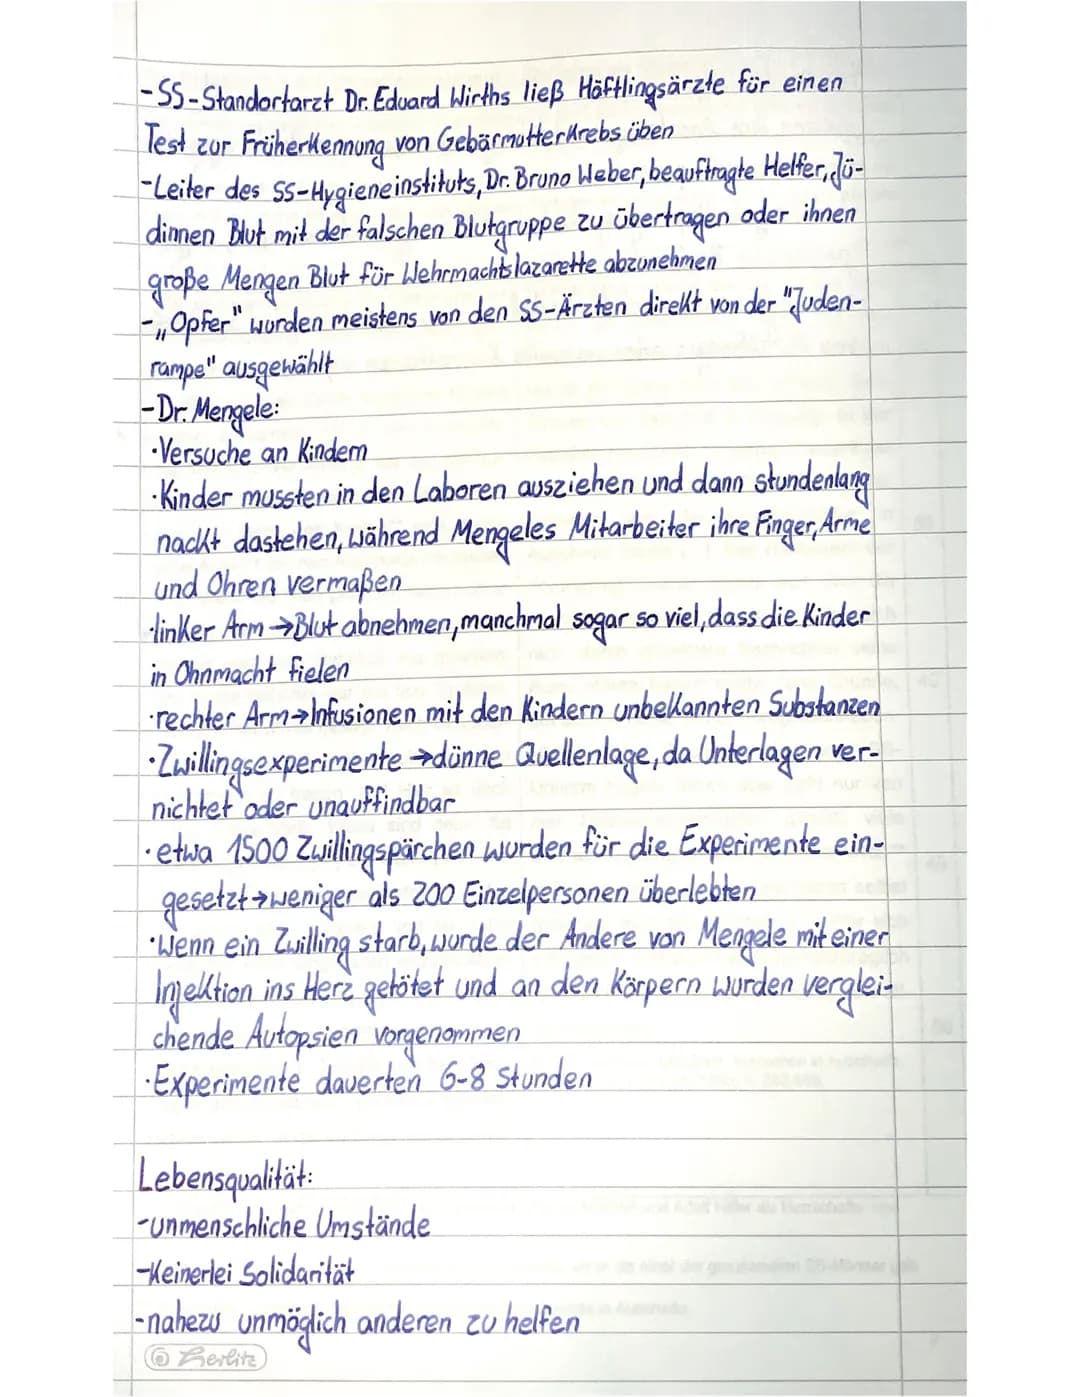 -SS-Standortarzt Dr. Eduard Wirths ließ Häftlingsärzte für einen
Test zur Früherkennung von Gebärmutterkrebs üben
-Leiter des SS-Hygieneinstituts, Dr. Bruno Weber, beauftragte Helfer, Jü-
dinnen Blut mit der falschen Blutgruppe zu übertragen oder ihnen
große Mengen Blut für Wehrmachtslazarette abzunehmen
-„Opfer" wurden meistens von den SS-Ärzten direkt von der "Juden-
rampe" ausgewählt
-Dr. Mengele:
·Versuche an Kindern
·Kinder mussten in den Laboren ausziehen und dann stundenlang
nackt dastehen, während Mengeles Mitarbeiter ihre Finger, Arme
und Ohren vermaßen
·linker Arm→Blut abnehmen, manchmal sogar so viel, dass die Kinder
in Ohnmacht fielen
·rechter Arm→Infusionen mit den Kindern unbekannten Substanzen
·Zwillingsexperimente→dünne Quellenlage, da Unterlagen ver-
nichtet oder unauffindbar
·etwa 1500 Zwillingspärchen wurden für die Experimente ein-
gesetzt→weniger als 200 Einzelpersonen überlebten
·Wenn ein Zwilling starb, wurde der Andere von Mengele mit einer
Injektion ins Herz getötet und an den Körpern wurden verglei-
chende Autopsien vorgenommen
·Experimente dauerten 6-8 Stunden
Lebensqualität:
-unmenschliche Umstände
-Keinerlei Solidarität
-nahezu unmöglich anderen zu helfen
Herlitz